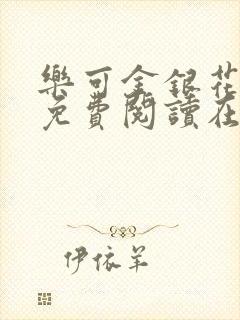 樂可金銀花
免費閱讀在
伊依羊